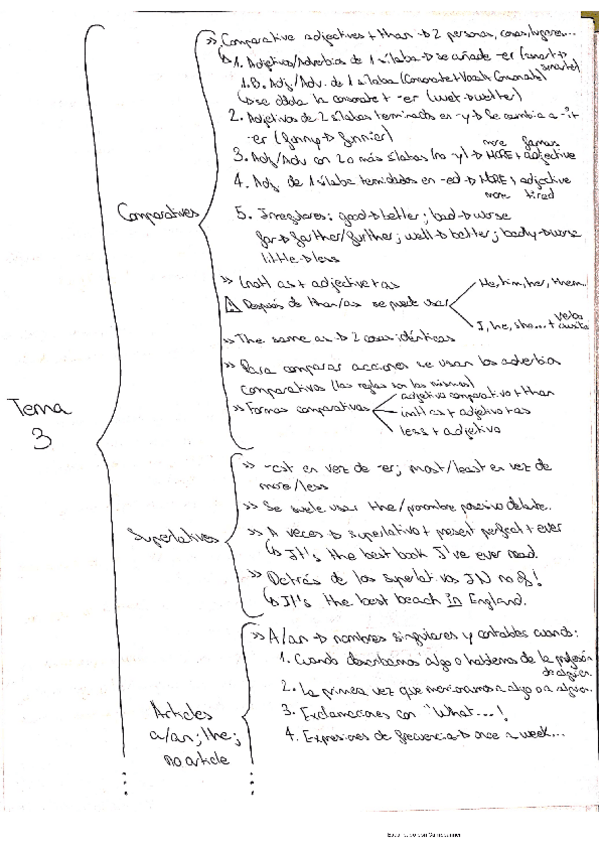 » Comparative adjectives + than → 2 personas, cosas, lugares...
↳ 1. Adjetivos/Adverbios de 1 sílaba → se añade -er (smart →
smarter)
1.B. Adj/Adv. de 1 sílaba (Consonate + Vocal + Consonate)
↳ se dobla la consonate + -er (wet → wetter)
2. Adjetivos de 2 sílabas terminados en -y → Se cambia a -i +
-er (funny → funnier)
more famous
3. Adj/Adv con 2 o más sílabas (no -y) → MORE + adjective
4. Adj. de 1 sílaba terminados en -ed → MORE + adjective
more tired
Comparatives
5. Irregulares: good → better; bad → worse
far → farther/further; well → better; badly → worse
little → less
» (not) as + adjective + as
He, him, her, them...
⚠ Después de than/as se puede usar
I, he, she... + verbo
auxiliar
» The same as → 2 cosas idénticas
» Para comparar acciones se usan los adverbios
comparativos (las reglas son las mismas)
Tema
3
» Formas comparativas
adjetivo comparativo + than
(not) as + adjetivo + as
less + adjetivo
Superlatives
» -est en vez de -er; most/least en vez de
more/less
» Se suele usar the/pronombre posesivo delante.
» A veces → superlativo + present perfect + ever
↳ It's the best book I've ever read.
» Detrás de los superlativos IN no of!
↳ It's the best beach in England.
Articles
a/an; the;
no article
» A/an → nombres singulares y contables cuando:
1. Cuando describamos algo o hablemos de la profesión
de alguien.
2. La primera vez que mencionamos a algo o a alguien.
3. Exclamaciones con "What...!
4. Expresiones de frecuencia → once a week...